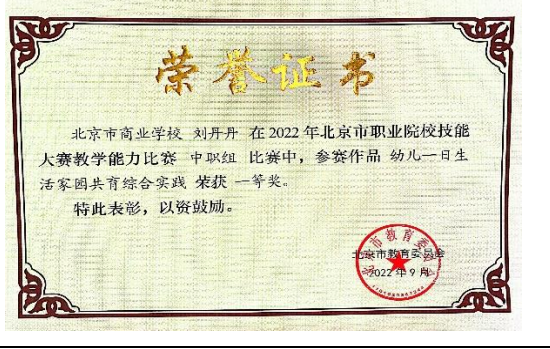 荣誉证书
北京市商业学校 刘丹丹 在2022年北京市职业院校技能
大赛教学能力比赛 中职组 比赛中，参赛作品 幼儿一日生
活家园共育综合实践 荣获 一等奖。
特此表彰，以资鼓励。
北京市教育委员会
2022年9月